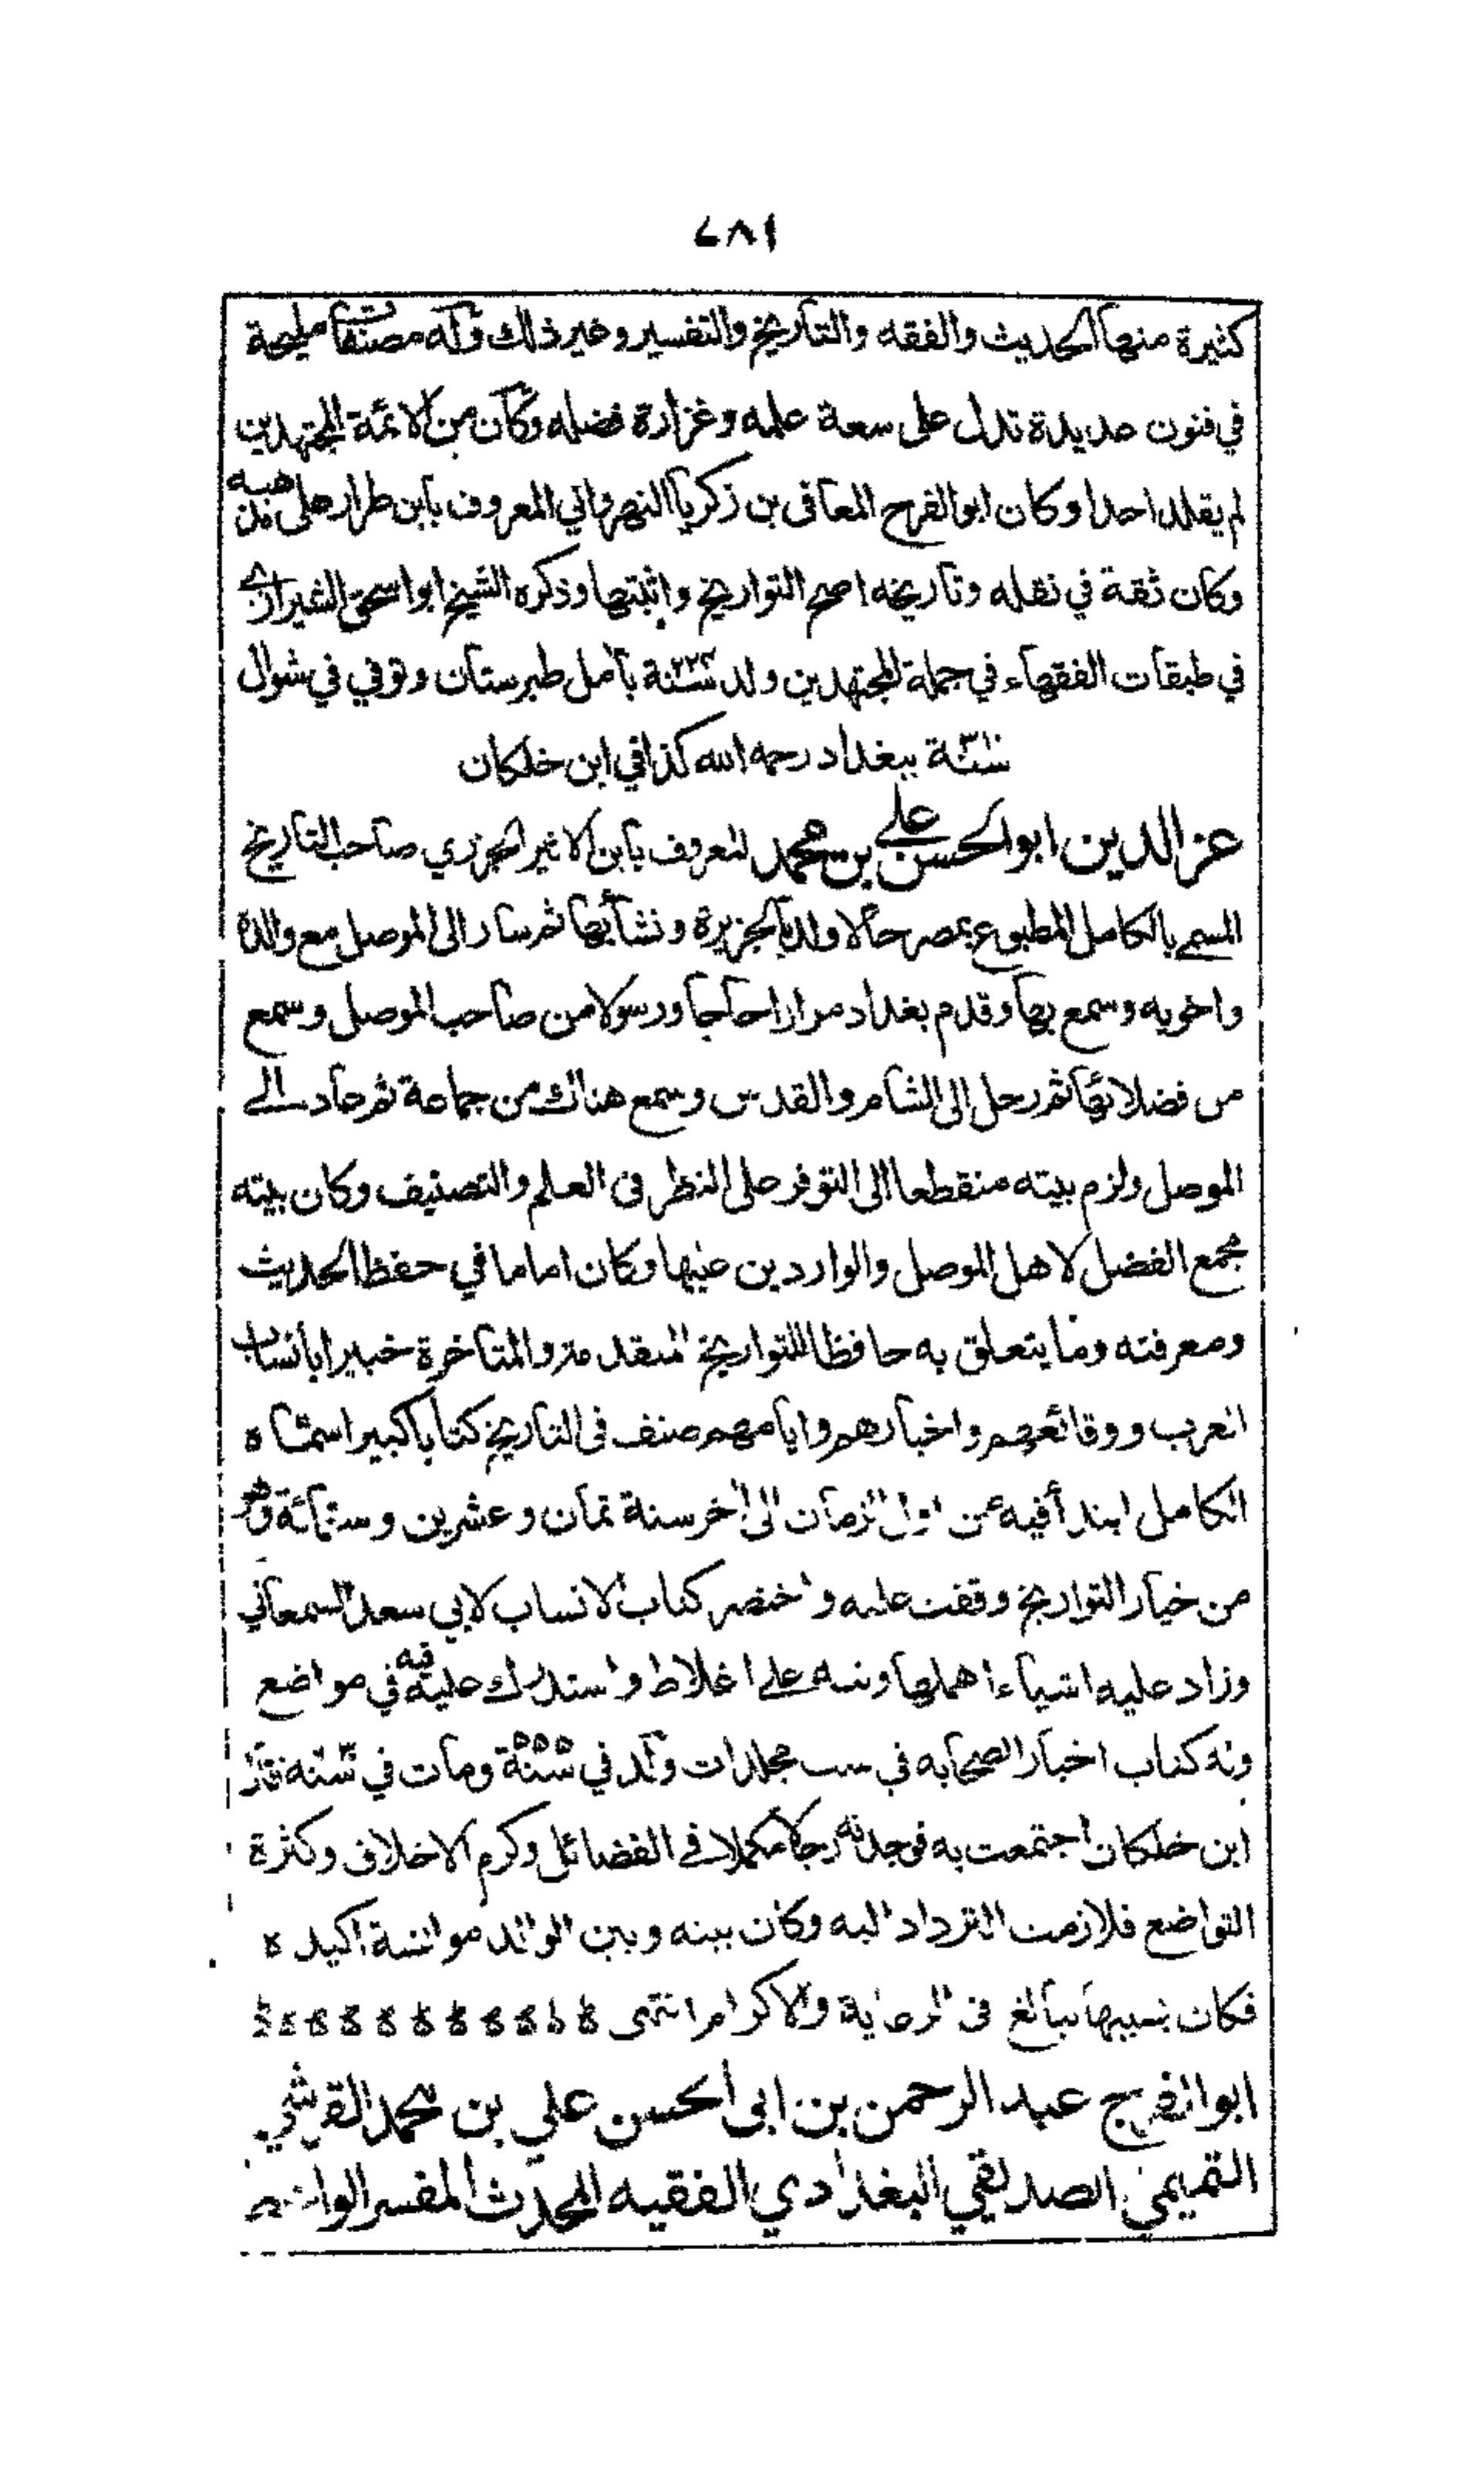 ٤٨١
كثيرة منها الحديث والفقه والتاريخ والتفسير وغير ذلك وله مصنفات مليحة
في فنون عديدة تدل على سعة علمه وغزارة فضله وكان من الائمة المجتهدين
لم يقلد احدا وكان ابو الفرج المعافى بن زكريا النهرواني المعروف بابن طرار على مذهبه
وكان ثقة في نقله وتاريخه اصح التواريخ واثبتها وذكره الشيخ ابو اسحق الشيرازي
في طبقات الفقهاء في جملة المجتهدين ولد سنة ٢٢٤ بآمل طبرستان وتوفي في شوال
سنة ٣١٠ ببغداد رحمه الله كذا في ابن خلكان
عز الدين ابو الحسن علي بن محمد المعروف بابن الاثير الجزري صاحب التاريخ
المسمى بالكامل المطبوع بمصر حالا ولد بالجزيرة ونشأ بها ثم سار الى الموصل مع والده
واخويه وسمع بها وقدم بغداد مرارا حاجا ورسولا من صاحب الموصل وسمع
من فضلائها ثم رحل الى الشام والقدس وسمع هناك من جماعة ثم عاد الى
الموصل ولزم بيته منقطعا الى التوفر على النظر فى العلم والتصنيف وكان بيته
مجمع الفضل لاهل الموصل والواردين عليها وكان اماما في حفظ الحديث
ومعرفته وما يتعلق به حافظا للتواريخ المتقدمة والمتاخرة خبيرا بانساب
العرب ووقائعهم واخبارهم وايامهم صنف فى التاريخ كتابا كبيرا اسماه
الكامل ابتدأ فيه من اول الزمان الى اخر سنة ثمان وعشرين وستمائة وهو
من خيار التواريخ وقفت عليه واختصر كتاب الانساب لابي سعد السمعاني
وزاد عليه اشياء اهملها ونبه على اغلاط واستدرك عليه فيه في مواضع
وله كتاب اخبار الصحابه في ست مجلدات ولد في سنة ٥٥٥ ومات في سنه ٦٣٠ قال
ابن خلكان اجتمعت به فوجدته رجلا مكملا في الفضائل وكرم الاخلاق وكثرة
التواضع فلازمت الترداد اليه وكان بينه وبين الوالد موانسة اكيده
فكان بسببها يبالغ فى الرعاية والاكرام انتهى
ابو الفرج عبد الرحمن بن ابى الحسن علي بن محمد القرشي
التميمي الصديقي البغدادي الفقيه المحدث المفسر الواعظ